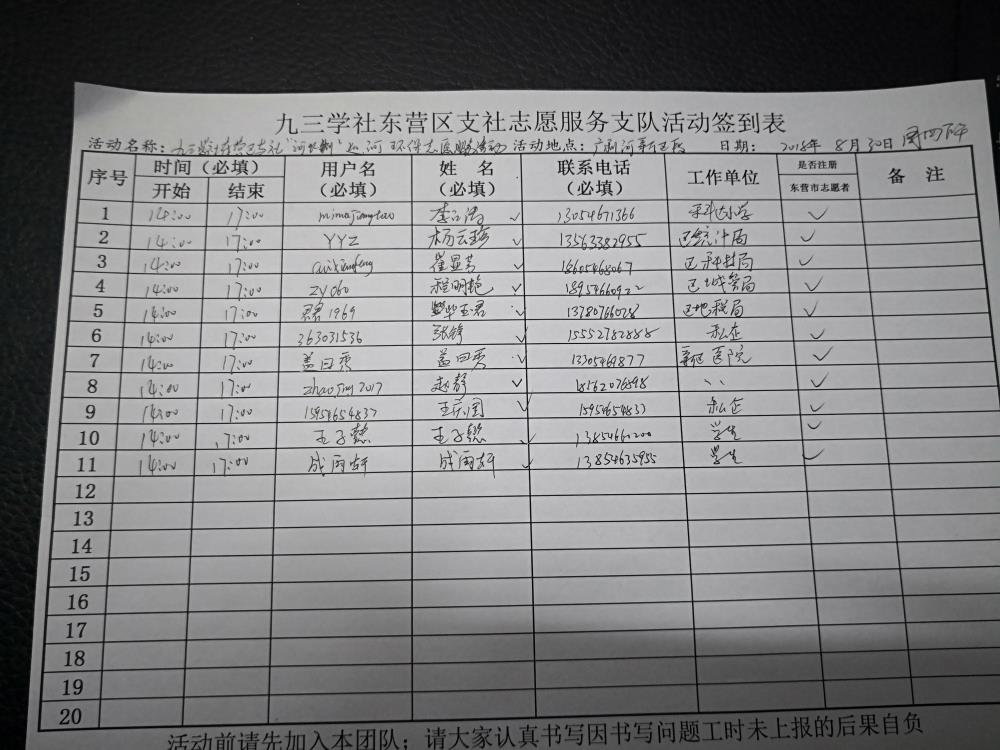 九三学社东营区支社志愿服务支队活动签到表
活动名称：九三学社东营区支社"河长制"巡河环保志愿服务活动 活动地点：广利河新区段 日期： 2018年 8月30日 周四下午
序号 时间（必填） 用户名（必填） 姓名（必填） 联系电话（必填） 工作单位 是否注册东营市志愿者 备注
开始 结束
1 14:00 17:00 李江涛 ✓ 13054671366 ✓
2 14:00 17:00 YYZ 杨云珍 ✓ 13563382955 区统计局 ✓
3 14:00 17:00 cuixianfeng 崔显芳 ✓ 18605468067 区科技局 ✓
4 14:00 17:00 zy060 程明艳 ✓ 18954660922 区城管局 ✓
5 14:00 17:00 君君1969 毕玉君 ✓ 13780766028 区地税局 ✓
6 14:00 17:00 363031536 张锋 ✓ 15552782888 私企 ✓
7 14:00 17:00 盖曰秀 盖曰秀 ✓ 13305469877 新区医院 ✓
8 14:00 17:00 zhaojing2017 赵静 ✓ 18162076898 、、 ✓
9 14:00 17:00 15954654837 ✓ 15954654837 私企 ✓
10 14:00 17:00 王子懿 王子懿 ✓ 13854661200 学生 ✓
11 14:00 17:00 成雨轩 成雨轩 ✓ 13854635955 学生 ✓
12
13
14
15
16
17
18
19
20
活动前请先加入本团队；请大家认真书写因书写问题工时未上报的后果自负